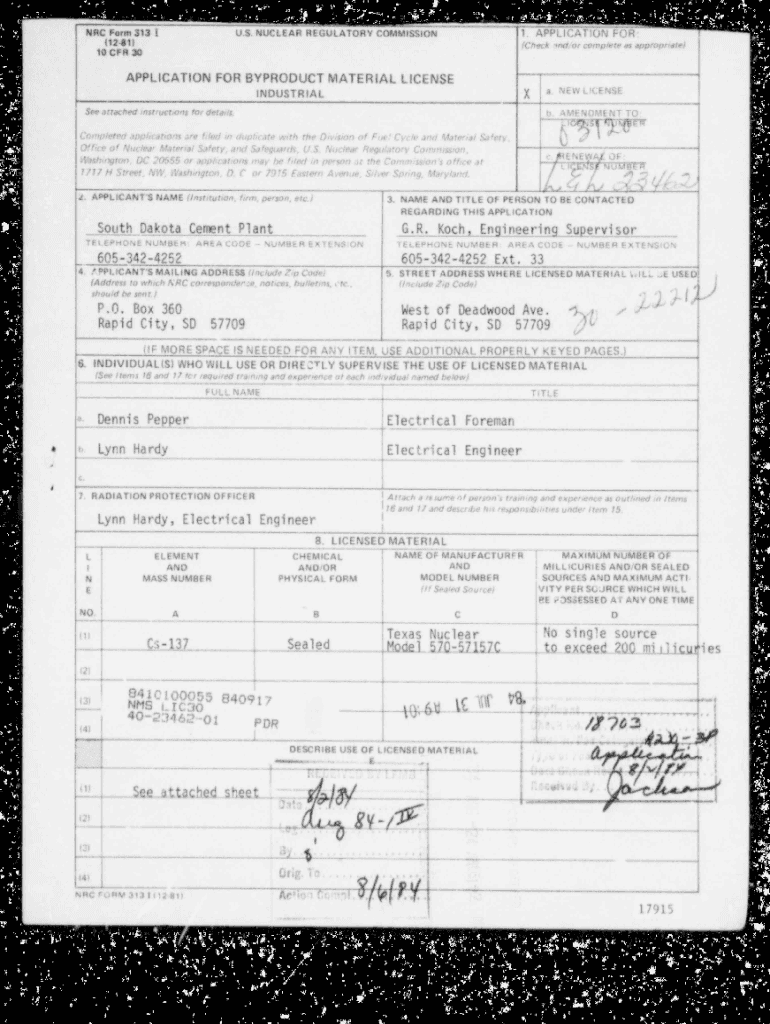 NRC Form 313 I
(12-81)
10 CFR 30
U.S. NUCLEAR REGULATORY COMMISSION
APPLICATION FOR BYPRODUCT MATERIAL LICENSE
INDUSTRIAL
1. APPLICATION FOR:
(Check and/or complete as appropriate)
X a. NEW LICENSE
b. AMENDMENT TO:
LICENSE NUMBER
03120
c. RENEWAL OF:
LICENSE NUMBER
L&L 23462
See attached instructions for details.
Completed applications are filed in duplicate with the Division of Fuel Cycle and Material Safety,
Office of Nuclear Material Safety, and Safeguards, U.S. Nuclear Regulatory Commission,
Washington, DC 20555 or applications may be filed in person at the Commission's office at
1717 H Street, NW, Washington, D. C. or 7915 Eastern Avenue, Silver Spring, Maryland.
2. APPLICANT'S NAME (Institution, firm, person, etc.)
South Dakota Cement Plant
TELEPHONE NUMBER: AREA CODE - NUMBER EXTENSION
605-342-4252
3. NAME AND TITLE OF PERSON TO BE CONTACTED
REGARDING THIS APPLICATION
G.R. Koch, Engineering Supervisor
TELEPHONE NUMBER: AREA CODE - NUMBER EXTENSION
605-342-4252 Ext. 33
4. APPLICANT'S MAILING ADDRESS (Include Zip Code)
(Address to which NRC correspondence, notices, bulletins, etc.,
should be sent.)
P.O. Box 360
Rapid City, SD 57709
5. STREET ADDRESS WHERE LICENSED MATERIAL WILL BE USED
(Include Zip Code)
West of Deadwood Ave.
Rapid City, SD 57709
30-22212
(IF MORE SPACE IS NEEDED FOR ANY ITEM, USE ADDITIONAL PROPERLY KEYED PAGES.)
6. INDIVIDUAL(S) WHO WILL USE OR DIRECTLY SUPERVISE THE USE OF LICENSED MATERIAL
(See Items 16 and 17 for required training and experience of each individual named below)
FULL NAME TITLE
a. Dennis Pepper Electrical Foreman
b. Lynn Hardy Electrical Engineer
c.
7. RADIATION PROTECTION OFFICER
Lynn Hardy, Electrical Engineer
Attach a resume of person's training and experience as outlined in Items
16 and 17 and describe his responsibilities under Item 15.
8. LICENSED MATERIAL
LINE NO.
ELEMENT AND MASS NUMBER
A
CHEMICAL AND/OR PHYSICAL FORM
B
NAME OF MANUFACTURER AND MODEL NUMBER
(If Sealed Source)
C
MAXIMUM NUMBER OF MILLICURIES AND/OR SEALED SOURCES AND MAXIMUM ACTIVITY PER SOURCE WHICH WILL BE POSSESSED AT ANY ONE TIME
D
(1) Cs-137 Sealed Texas Nuclear Model 570-57157C No single source to exceed 200 millicuries
(2)
(3)
(4)
8410100055 840917
NMS LIC30
40-23462-01 PDR
'84 JUL 31 A9:01
Applicant
18703
Application
8/2/84
Received By
Jackson
DESCRIBE USE OF LICENSED MATERIAL
E
(1) See attached sheet
(2)
(3)
(4)
Date 8/2/84
Log Aug 84-1 IV
By
Orig. To
Action Compl. 8/6/84
NRC FORM 313 I (12-81)
17915